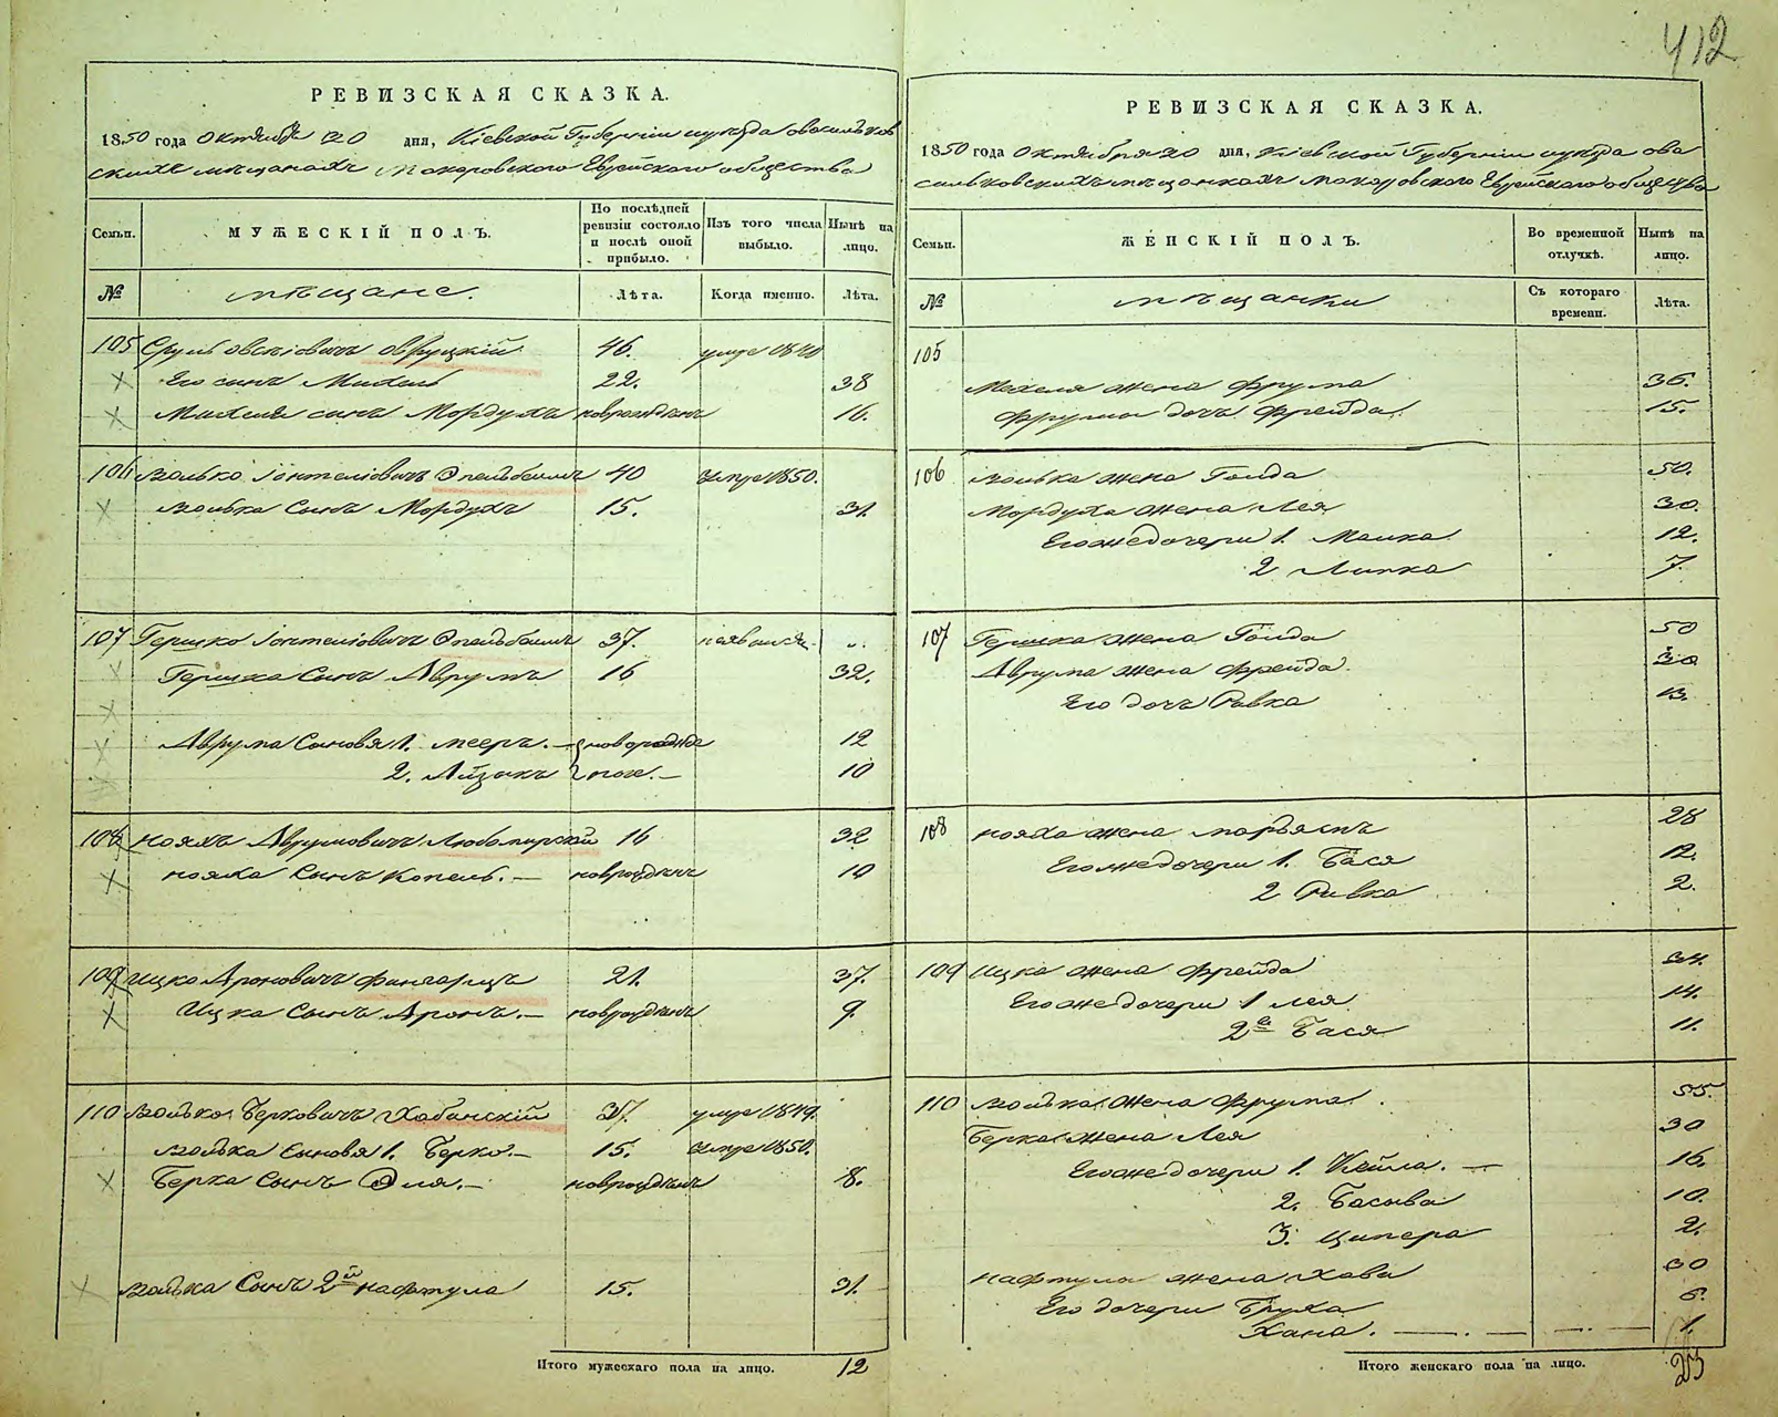 412
РЕВИЗСКАЯ СКАЗКА.
1850 года Октября 20 дня, Кіевской Губерніи уезда о васильков
скихъ мѣщанахъ Макаровского Еврейского общества
Семьи. МУЖЕСКІЙ ПОЛЪ. По послѣдней ревизіи состояло и послѣ оной прибыло. Изъ того числа выбыло. Нынѣ на лицо.
№ мѣщане. Лѣта. Когда именно. Лѣта.
105 Сруль Овсіовичъ Овруцкій 46. умре 1840
Его сынъ Михель 22. 38
Михеля сынъ Мордухъ новорожденъ 16.
106 Волько Іонтеліовичъ Эпельбеимъ 40 умре 1850.
Волька Сынъ Мордухъ 15. 31.
107 Гершко Іонтеліовичъ Эпельбеимъ 37. неявился. „.
Гершка Сынъ Аврумъ 16 32.
Аврума Сыновя 1. Мееръ. — новорожде 12
2. Айзикъ ные. — 10
108 Нояхъ Аврумовичъ Любомирскій 16 32
Нояха Сынъ Копель. — новорожденъ 10
109 Ицко Ароновичъ Фингарицъ 21. 37.
Ицка Сынъ Аронъ. — новорожденъ 9.
110 Волько Берковичъ Хабанскій 37. умре 1849.
Волька Сыновя 1. Берко. — 15. умре 1850.
Берка Сынъ Эля. — новорожденъ 8.
Волька Сынъ 2й Нафтула 15. 31.
Итого мужескаго пола на лицо. 12
РЕВИЗСКАЯ СКАЗКА.
1850 года Октября 20 дня, Кіевской Губерніи уезда о ва
сильковскихъ мѣщанкахъ Макаровского Еврейского общества
Семьи. ЖЕНСКІЙ ПОЛЪ. Во временной отлучкѣ. Нынѣ на лицо.
№ мѣщанки Съ котораго времени. Лѣта.
105
Михеля жена Фрума 36.
Фрумы дочь Фрейда. 15.
106 Волька жена Голда 50.
Мордуха жена Лея 30.
Его же дочери 1. Малка 12.
2 Липка 7.
107 Гершка жена Голда 50
Аврума жена Фрейда. 30
Его дочь Ривка 13.
108 Нояха жена Марьямъ 28
Его же дочери 1. Бася 12.
2 Ривка 2.
109 Ицка жена Фрейда 34.
Его же дочери 1 Лея 14.
2я Бася 11.
110 Волька жена Фрума. 55.
Берка жена Лея 30
Его же дочери 1. Кейла. — 16.
2. Басшва 10.
3. Ципера 2.
Нафтулы жена Хава 30
Его дочери Бруха 6.
Хана. 1.
Итого женскаго пола на лицо. 23